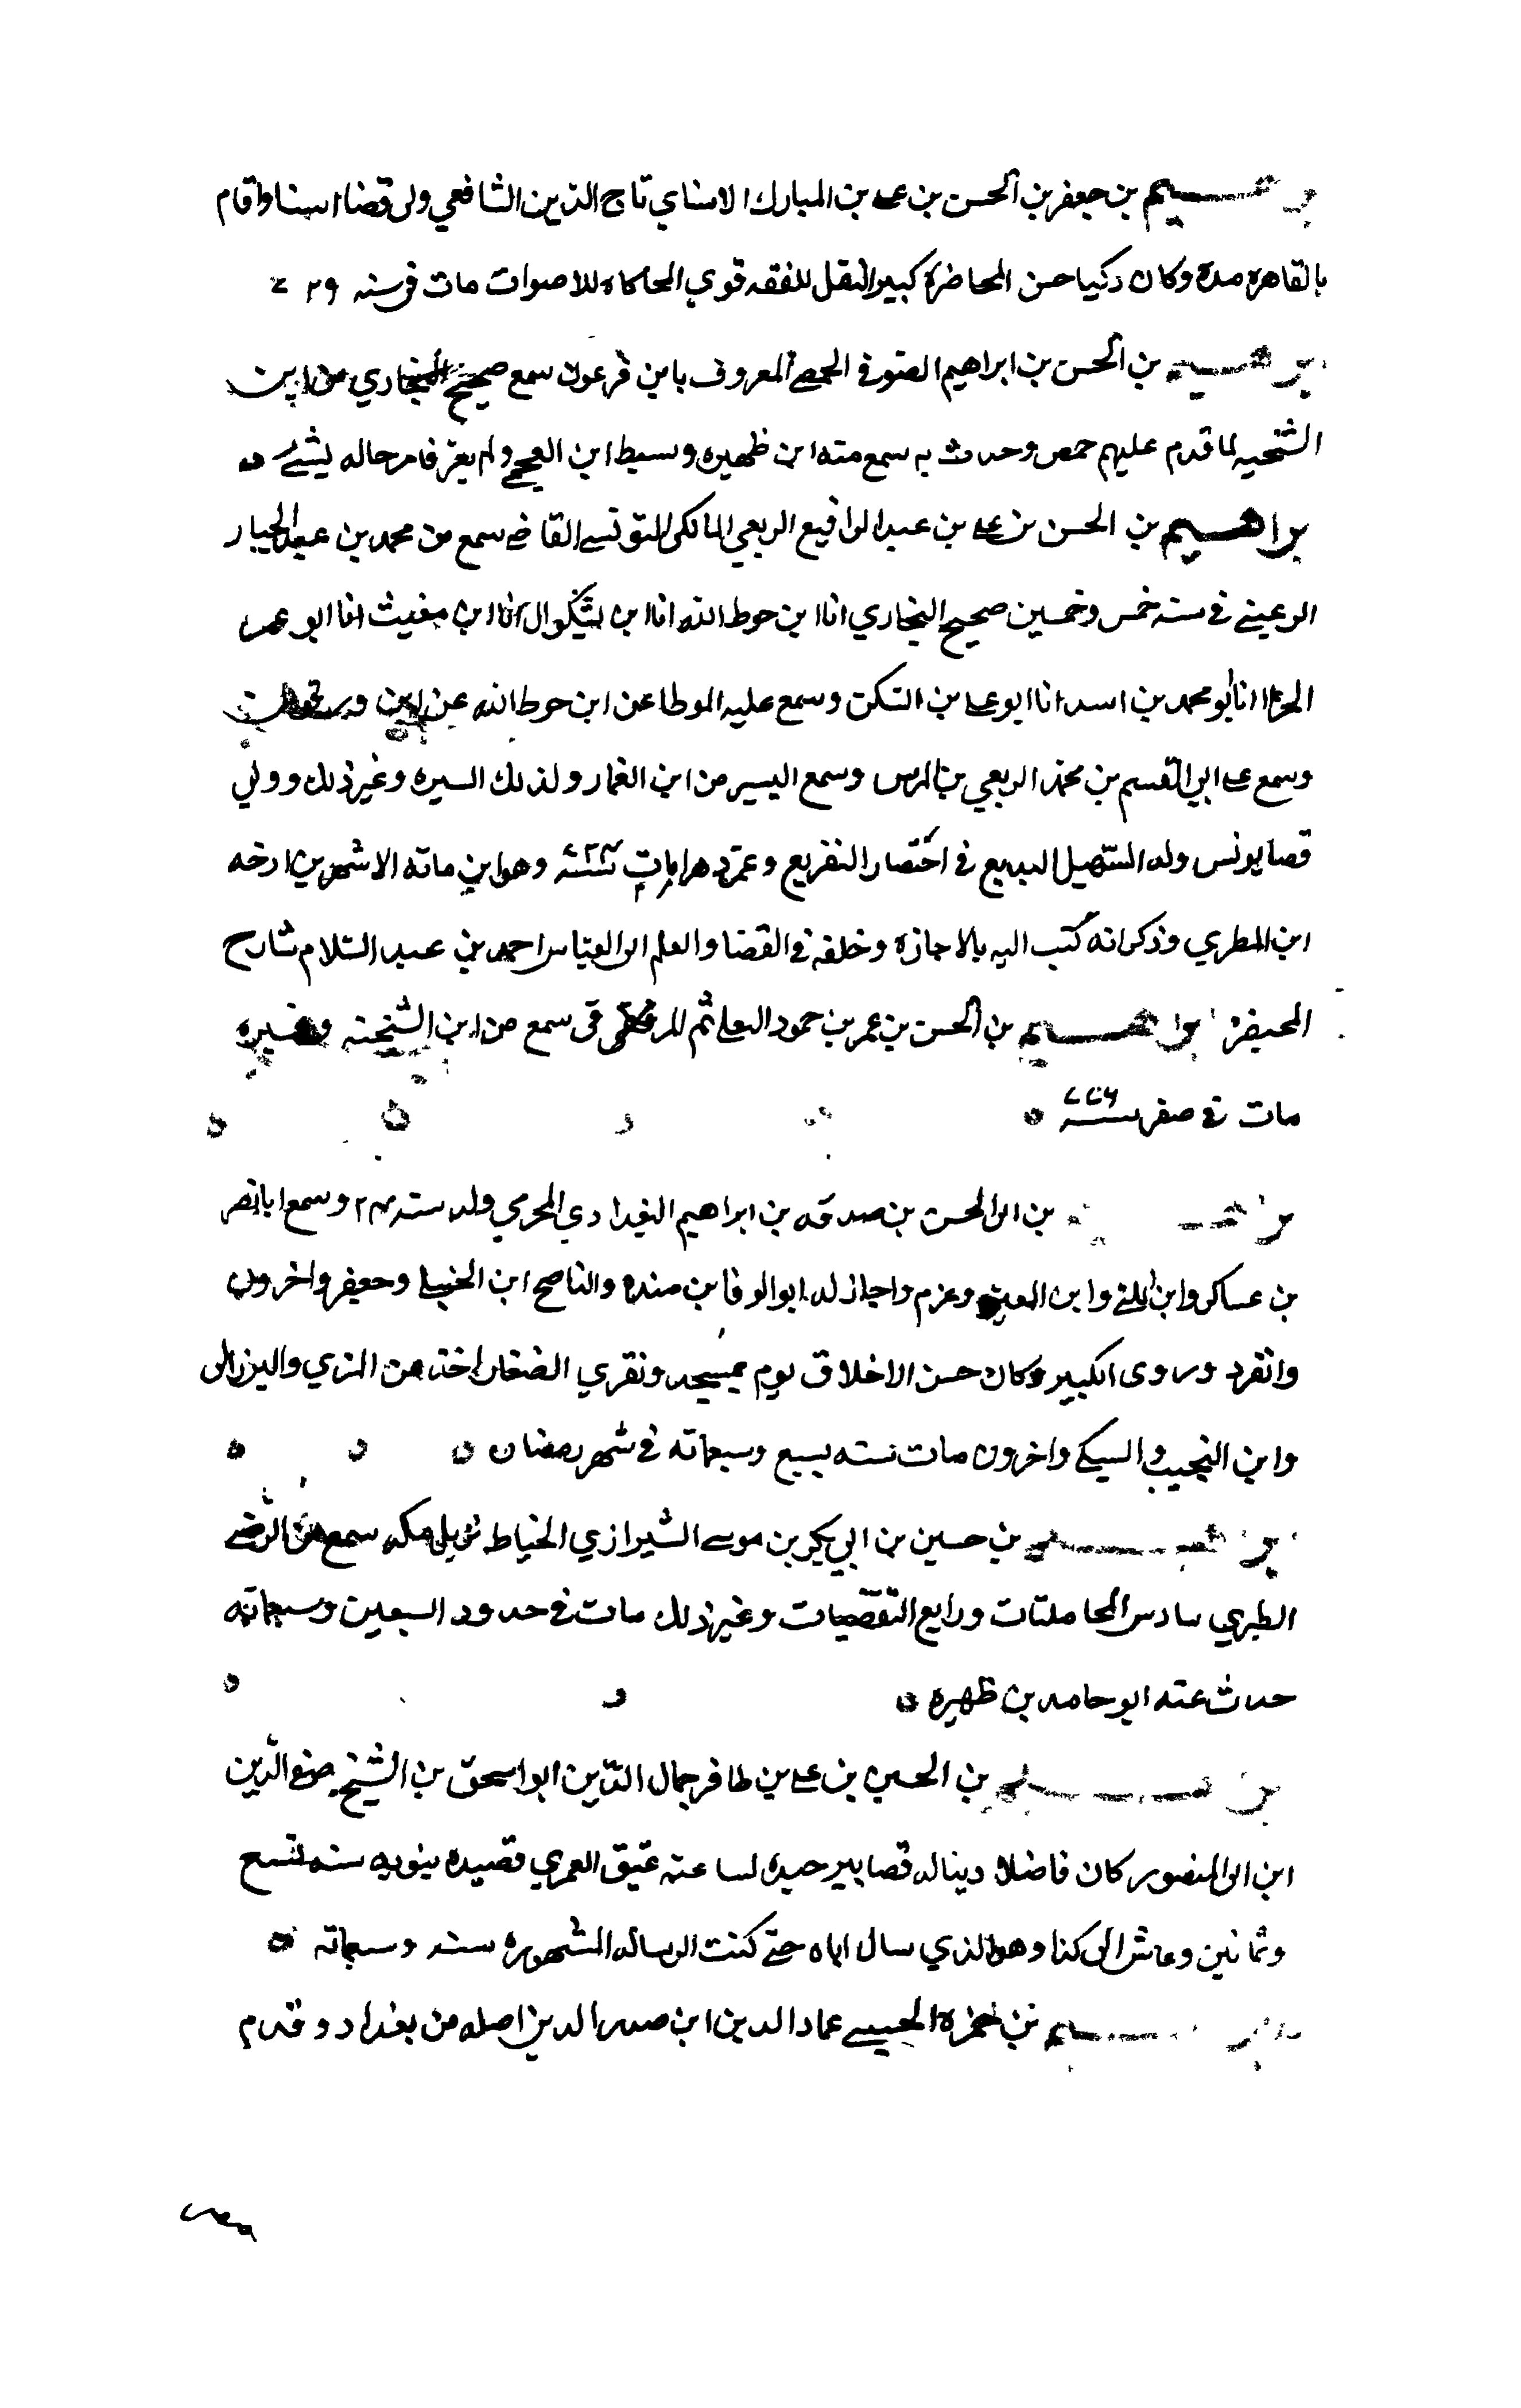 براهيم بن جعفر بن الحسن بن علي بن المبارك الاسناي تاج الدين الشافعي ولي قضا اسنا واقام
بالقاهرة مدة وكان ذكيا حسن المحاضرة كبير النقل للفقه قوي المحاكاه للاصوات مات في سنه ٧٢٩
براهيم بن الحسن بن ابراهيم الصوفي الحمصي المعروف بابن فرعون سمع صحيح البخاري من ابن
الشحنه لما قدم عليهم حمص وحدث به سمع منه ابن ظهيره وسبط ابن العجمي ولم يعرفا من حاله بشيء
براهيم بن الحسن بن علي بن عبد الرافيع الربعي المالكي التونسي القاضي سمع من محمد بن عبد الجبار
الرعيني في سنه خمس وخمسين صحيح البخاري انا ابن حوط الله انا ابن بشكوال انا ابن مغيث انا ابو عمر
الحذا انا أبو محمد بن اسد انا ابو علي بن السكن وسمع عليه الموطا عن ابن حوط الله عن ابن
وسمع علي ابي القسم بن محمد الربعي بن وسمع اليسير من ابن الغمار ولذلك السيره وغير ذلك وولي
قضا يونس وله السهيل البديع في اختصار التفريع وعمر دهرا مات سنة وهو ابن مائه الا شهرين ارخه
ابن المطري وذكر انه كتب اليه بالاجازه وخلفه في القضا والعلم ابو العباس احمد بن عبد السلام شارح
براهيم بن الحسن بن عمر بن حمود البعلي ثم سمع من ابن الشحنه وغيره
مات في صفر سنة ٧٧٦
براهيم بن ابي الحسن بن صدقه بن ابراهيم البغدادي المخرمي ولد سنه وسمع ابا نصر
بن عساكر وابن اللتي وابن وغيرهم واجاز له ابو الوفا بن منده والناصح ابن الحنبلي وجعفر واخرون
وانفرد وروى الكبير وكان حسن الاخلاق يوم بمسجد ونقري الصغار اخذ عن المزي والبرزالي
وابن النجيب والسبكي واخرون مات سنه بسبع وسبعمائه في شهر رمضان
براهيم بن حسين بن ابي بكر بن موسى الشيرازي الخياط نزيل مكه سمع من الرضي
الطبري سادس المحامليات ورابع الثقفيات وغير ذلك مات في حدود السبعين وسبعمائه
حدث عنه ابو حامد بن ظهيره
براهيم بن الحسين بن علي بن ظافر جمال الدين ابو اسحق بن الشيخ صفي الدين
ابن ابي المنصور كان فاضلا دينا له قصايد عتيق العمري قصيده سنه تسع
وثمانين وعاش الى كذا وهو الذي سال اباه حتى كتب الرساله المشهوره سنه وسبعمائه
براهيم بن حمزه الحسيني عماد الدين ابن صدر الدين اصله من بغداد وقدم